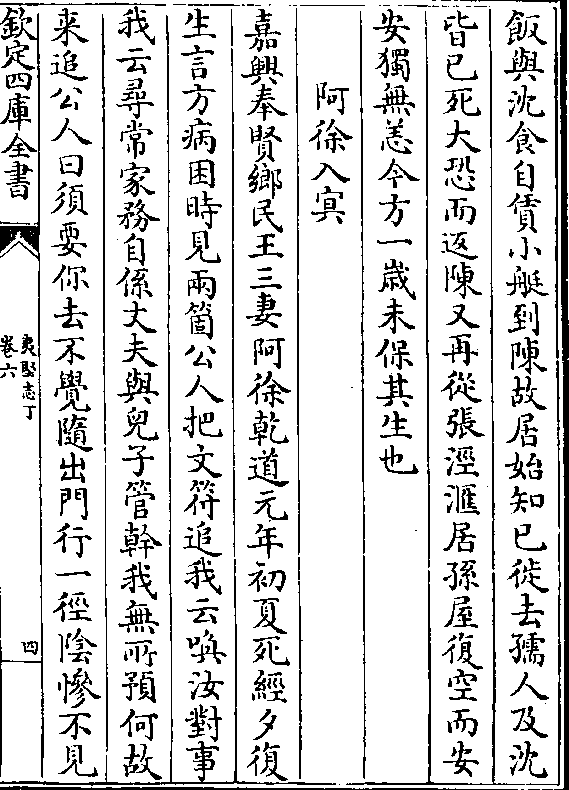 飯與沈食自賃小艇到陳故居始知已徙去孺人及沈
皆已死大恐而返陳又再從張涇滙居孫屋復空而安
安獨無恙今方一歲未保其生也
阿徐入冥
嘉興奉賢鄉民王三妻阿徐乾道元年初夏死經夕復
生言方病困時見兩箇公人把文符追我云喚汝對事
我云尋常家務自係丈夫與兒子管幹我無所預何故
来追公人曰須要你去不覺隨出門行一徑陰慘不見
欽定四庫全書
夷堅志丁
卷六
四